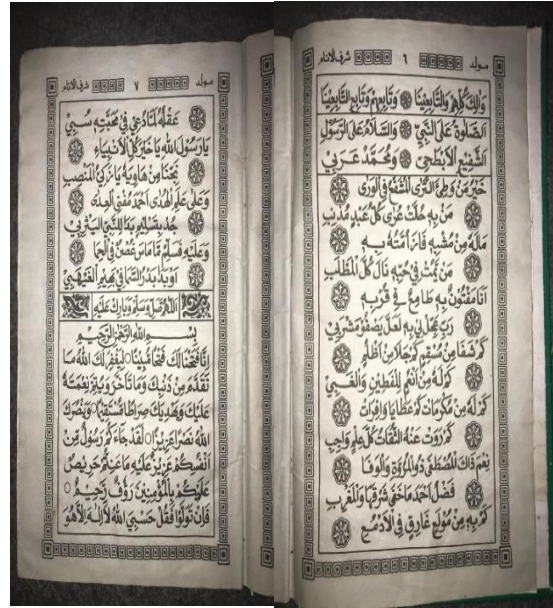 مولد ٦ شرف الانام
وَاٰلِكَ كُلِّهِمْ وَالتَّابِعِيْنَا وَتَابِعِهِمْ وَتَابِعِ التَّابِعِيْنَا
اَلصَّلٰوةُ عَلَى النَّبِيْ وَالسَّلَامُ عَلَى الرَّسُوْلِ
اَلشَّفِيْعِ الْاَبْطَحِيْ وَمُحَمَّدٌ عَرَبِيْ
خَيْرُ مَنْ وَطِئَ الثَّرٰى الْمُشَفَّعُ فِي الْوَرٰى
مَنْ بِهِ حُلَّتْ عُرٰى كُلِّ عَبْدٍ مُذْنِبِ
مَالَهُ مِنْ مُشْبِهٍ فَازَ اُمَّتُهُ بِهِ
مَنْ يَمُتْ فِيْ حُبِّهِ نَالَ كُلَّ الْمَطْلَبِ
اَنَا مَفْتُوْنٌ بِهِ طَامِعٌ فِيْ قُرْبِهِ
رَبِّ عَجِّلْ لِيْ بِهِ لَعَلَّ يَصْفُوْ مَشْرَبِيْ
كَمْ شَفَا مِنْ مُسْقِمٍ كَمْ جَلَا مِنْ اَظْلُمِ
كَمْ لَهُ مِنْ اَنْعُمِ لِلْفَطِيْنِ وَالْغَبِيْ
كَمْ لَهُ مِنْ مَكْرُمَاتٍ كَمْ عَطَايَا وَافِرَاتٍ
كَمْ رَوَتْ عَنْهُ الثِّقَاتُ كُلَّ عِلْمٍ وَاجِبِ
نِعْمَ ذَاكَ الْمُصْطَفٰى ذُو الْمُرُوَّةِ وَالْوَفَا
فَضْلُ اَحْمَدَ مَا خَفٰى شَرْقُهَا وَالْمَغْرِبِ
كَمْ بِهِ مِنْ مُوْلَعٍ غَارِقٍ فِي الْاَدْمُعِ
مولد ٧ شرف الانام
عَقْلُهُ لَمَّا دُعِيْ فِيْ مَحَبَّتِهِ سُبِيْ
يَا رَسُوْلَ اللهِ يَا خَيْرَ كُلِّ الْاَنْبِيَاءِ
نَجِّنَا مِنْ هَاوِيَةٍ يَا زَكِيَّ الْمَنْصِبِ
وَعَلٰى عَلَمِ الْهُدٰى اَحْمَدَ مُفْنِي الْعِدٰى
جُدْ بِتَسْلِيْمٍ بَدَا لِلنَّبِيِّ الْيَثْرِبِيْ
وَعَلَيْهِ فَسَلِّمْ مَّا مَاسَ غُصْنٌ فِي الْحِمَا
اَوْ بَدَا بَدْرُ السَّمَا فِيْ بَهِيْمِ الْغَيْهَبِيْ
اَللّٰهُمَّ صَلِّ وَسَلِّمْ وَبَارِكْ عَلَيْهِ
بِسْمِ اللهِ الرَّحْمٰنِ الرَّحِيْمِ
اِنَّا فَتَحْنَا لَكَ فَتْحًا مُّبِيْنًا لِيَغْفِرَ لَكَ اللهُ مَا
تَقَدَّمَ مِنْ ذَنْبِكَ وَمَا تَاَخَّرَ وَيُتِمَّ نِعْمَتَهُ
عَلَيْكَ وَيَهْدِيَكَ صِرَاطًا مُّسْتَقِيْمًا وَيَنْصُرَكَ
اللهُ نَصْرًا عَزِيْزًا لَقَدْ جَاءَكُمْ رَسُوْلٌ مِّنْ
اَنْفُسِكُمْ عَزِيْزٌ عَلَيْهِ مَا عَنِتُّمْ حَرِيْصٌ
عَلَيْكُمْ بِالْمُؤْمِنِيْنَ رَؤُفٌ رَّحِيْمٌ
فَاِنْ تَوَلَّوْا فَقُلْ حَسْبِيَ اللهُ لَا اِلٰهَ اِلَّا هُوَ